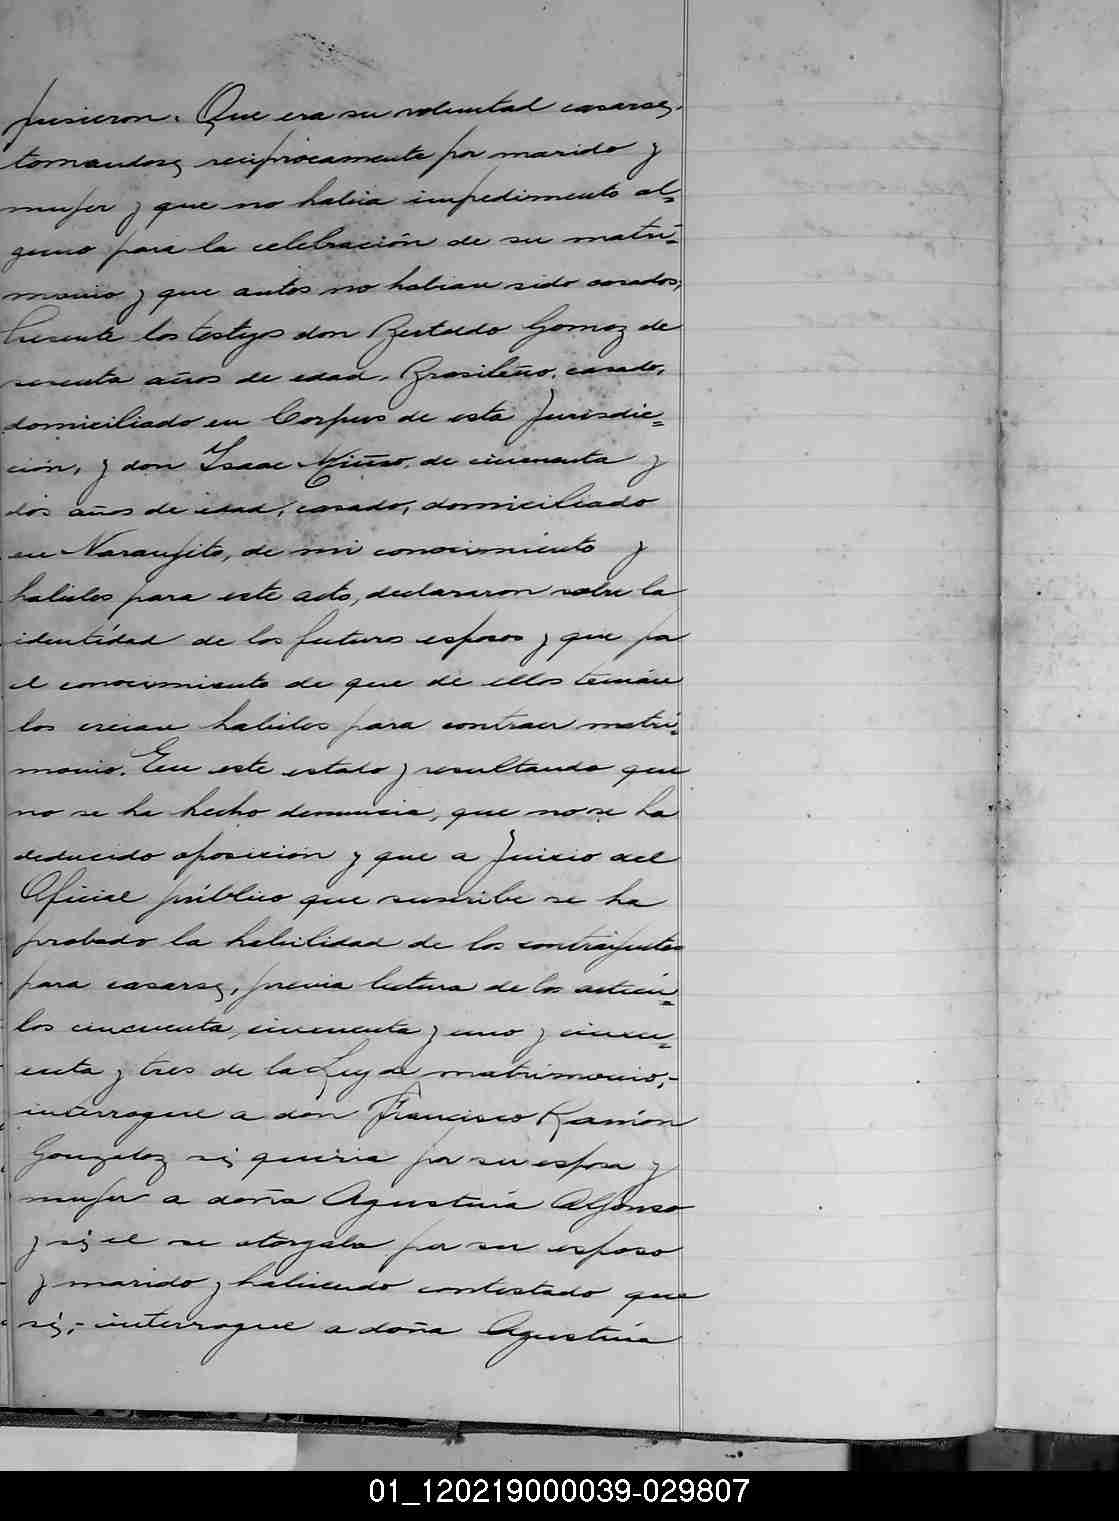 pusieron. Que era su voluntad casarse,
tomandose reciprocamente por marido y
mujer y que no habia impedimento al=
guno para la celebración de su matri=
monio y que antes no habian sido casados,
Presente los testigos don Bertoldo Gomez de
sesenta años de edad, Brasileño, casado,
domiciliado en Corpus de esta Jurisdic=
ción, y don Isaac Miño, de cincuenta y
dos años de edad, casado, domiciliado
en Naranjito, de mi conocimiento y
habiles para este acto, declararon sobre la
identidad de los futuros esposos y que por
el conocimiento de que de ellos tenian
los creian habiles para contraer matri=
monio. En este estado y resultando que
no se ha hecho denuncia, que no se ha
deducido oposicion y que a Juicio del
Oficial público que suscribe se ha
probado la habilidad de los contrayentes
para casarse, previa lectura de los articu=
los cincuenta, cincuenta y uno y cincu=
enta y tres de la Ley de matrimonio,-
interrogue a don Francisco Ramón
Gonzalez si queria por su esposa y
mujer a doña Agustina Alfonso
y si el se otorgaba por su esposo
y marido y habiendo contestado que
si,- interrogue a doña Agustina
01_120219000039-029807